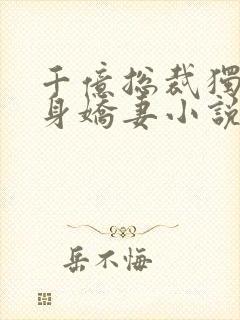 千億總裁獨
身嬌妻小説
岳不悔